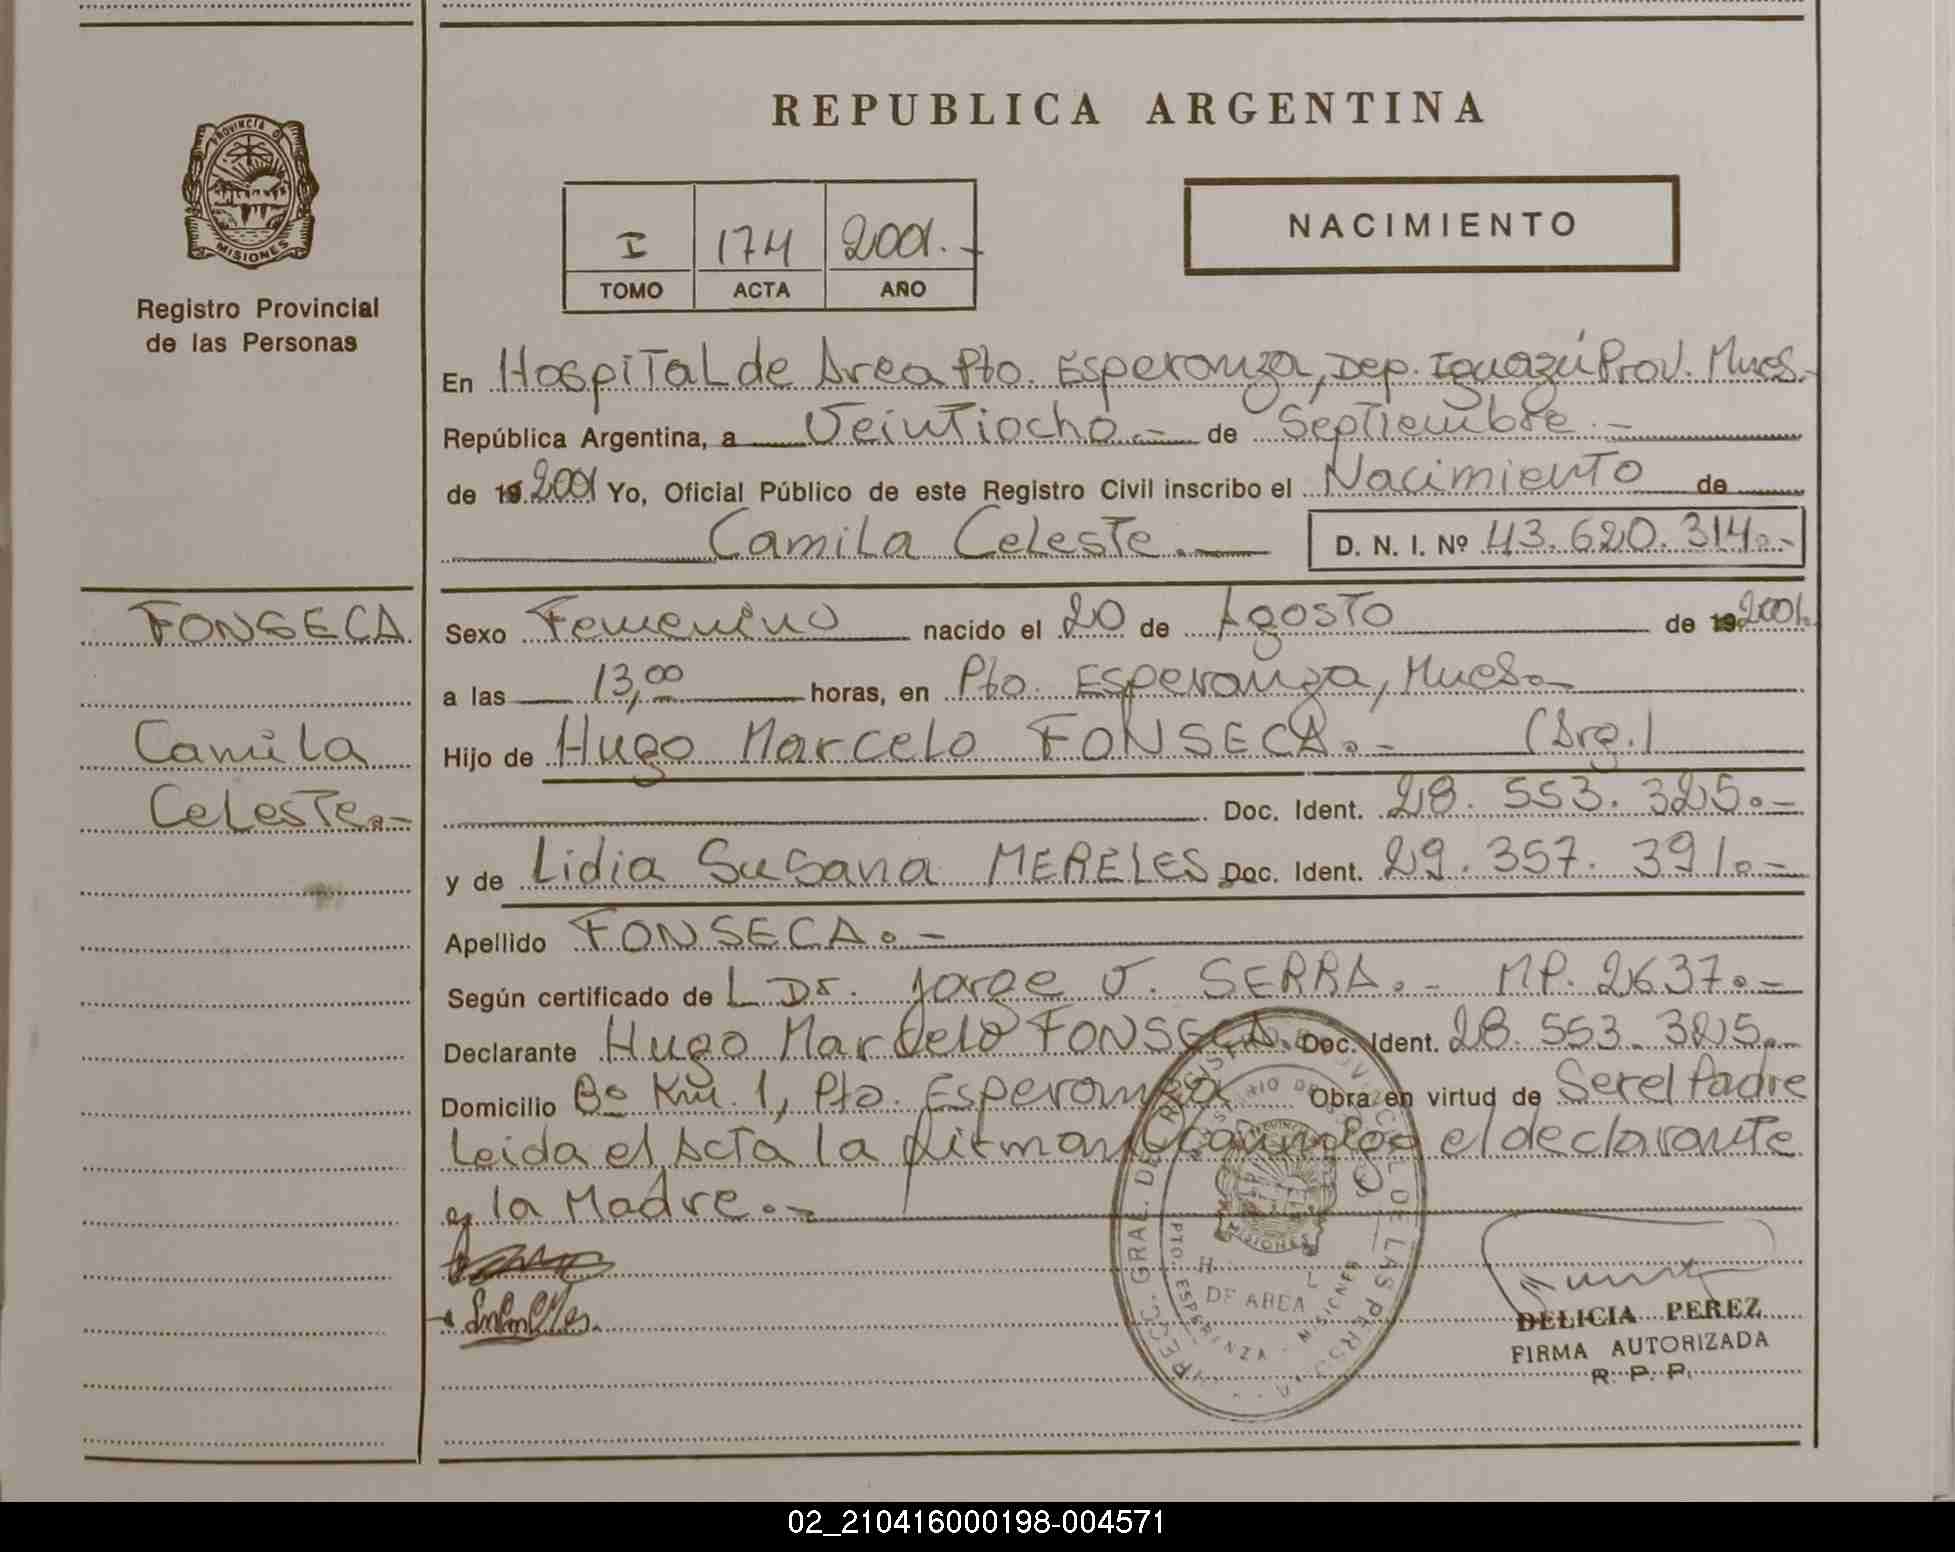 REPUBLICA ARGENTINA
PROVINCIA D
MISIONES
Registro Provincial
de las Personas
I 174 2001.-
TOMO ACTA AÑO
NACIMIENTO
En Hospital de Area Pto. Esperanza, Dep. Iguazú Prov. Mnes.-
República Argentina, a Veintiocho.- de Septiembre.-
de 19 2001 Yo, Oficial Público de este Registro Civil inscribo el Nacimiento de
Camila Celeste.- D. N. I. Nº 43.620.314.-
FONSECA
Camila
Celeste.-
Sexo Femenino nacido el 20 de Agosto de 19 2001.
a las 13,00 horas, en Pto. Esperanza, Mnes.-
Hijo de Hugo Marcelo FONSECA.- (Arg.)
Doc. Ident. 28.553.325.-
y de Lidia Susana MERELES Doc. Ident. 29.357.391.-
Apellido FONSECA.-
Según certificado de L Dr. Jorge V. SERRA.- MP. 2637.-
Declarante Hugo Marcelo FONSECA. Doc. Ident. 28.553.325.-
Domicilio Bº Km. 1, Pto. Esperanza Obra en virtud de Ser el Padre
Leida el Acta la firman conmigo el declarante
y la Madre.-
DE AREA
PTO. ESPERANZA - MISIONES
DELICIA PEREZ
FIRMA AUTORIZADA
R. P. P.
02_210416000198-004571